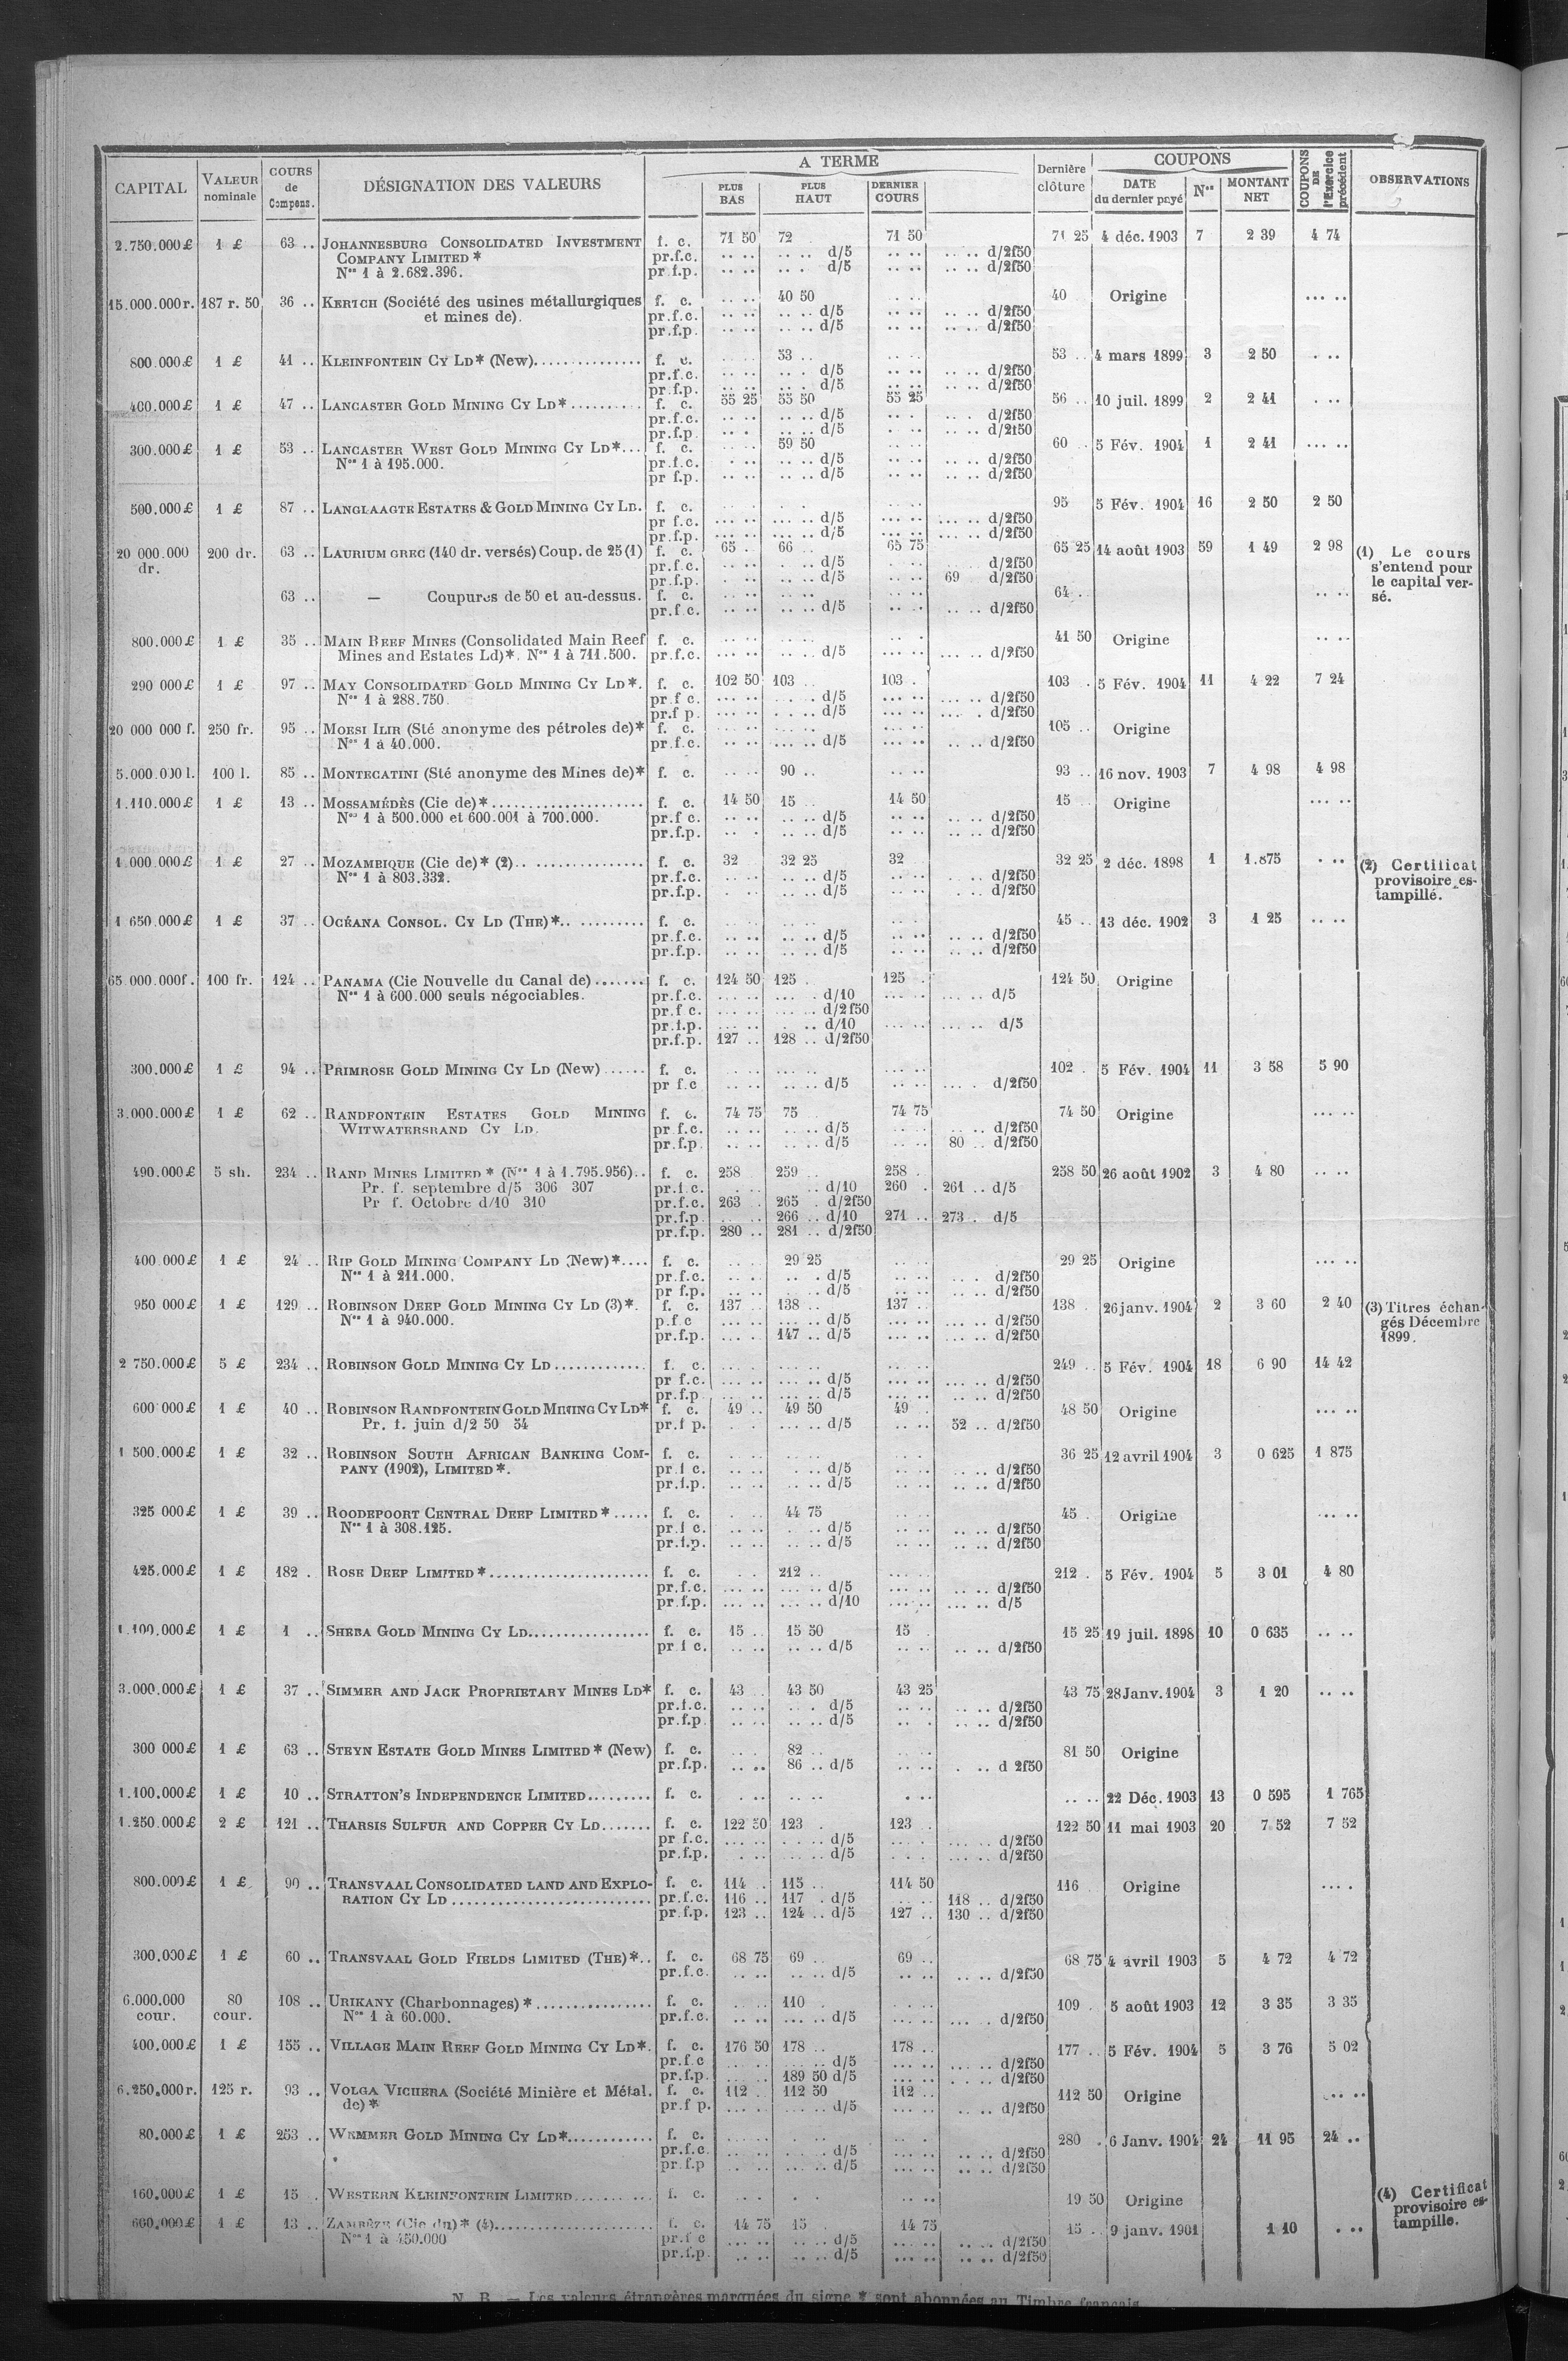 CAPITAL | VALEUR nominale | COURS de Compens. | DÉSIGNATION DES VALEURS | A TERME | PLUS BAS | PLUS HAUT | DERNIER COURS | Dernière clôture | COUPONS | DATE du dernier payé | Nos | MONTANT NET | COUPONS DE l'Exercice précédent | OBSERVATIONS
2.750.000 £ 1 £ 63 .. JOHANNESBURG CONSOLIDATED INVESTMENT f. c. 71 50 72 71 50 71 25 4 déc. 1903 7 2 39 4 74
COMPANY LIMITED * pr.f.c. .. .. .. .. d/5 .. .. .. .. d/2f50
Nos 1 à 2.682.396. pr f.p. .. .. .. . d/5 .. .. .. .. d/2f50
15.000.000 r. 187 r. 50 36 .. KERTCH (Société des usines métallurgiques f. c. .. .. 40 50 40 Origine ... ..
et mines de). pr.f.c. .. .. .. .. d/5 .. .. .. .. d/2f50
pr.f.p. .. .. .. .. d/5 .. .. .. .. d/2f50
800.000 £ 1 £ 41 .. KLEINFONTEIN CY LD* (New).............. f. c. 53 .. 53 .. 4 mars 1899 3 2 50 . ..
pr.f.c. .. .. .. . d/5 .. .. .. .. d/2f50
pr.f.p. .. .. .. . d/5 .. .. .. .. d/2f50
400.000 £ 1 £ 47 .. LANCASTER GOLD MINING CY LD*.......... f. c. 55 25 55 50 55 25 56 .. 10 juil. 1899 2 2 41 . ..
pr.f.c. .. .. .. .. d/5 .. . .. . d/2f50
pr.f.p. .. . .. .. d/5 . .. .. .. d/2f50
300.000 £ 1 £ 53 .. LANCASTER WEST GOLD MINING CY LD*... f. c. 59 50 60 .. 5 Fév. 1904 1 2 41 ... ..
Nos 1 à 195.000. pr.f.c. . .. .. .. d/5 .. .. .. .. d/2f50
pr f.p. .. .. .. .. d/5 .. .. .. .. d/2f50
500.000 £ 1 £ 87 .. LANGLAAGTE ESTATES & GOLD MINING CY LD. f. c. 95 5 Fév. 1904 16 2 50 2 50
pr f.c. ... .. ... .. d/5 ... .. ... .. d/2f50
pr.f.p. ... .. ... .. d/5 ... .. .. .. d/2f50
20 000.000 dr. 200 dr. 63 .. LAURIUM GREC (140 dr. versés) Coup. de 25 (1) f. c. 65 .. 66 .. 65 75 65 25 14 août 1903 59 1 49 2 98 (1) Le cours
pr.f.c. .. .. . .. d/5 . .. d/2f50 s'entend pour
pr.f.p. . .. .. .. d/5 .. .. 69 d/2f50 le capital ver-
63 .. — Coupures de 50 et au-dessus. f. c. .. .. .. .. .. .. 64 . .. .. sé.
pr.f.c. .. .. .. .. d/5 .. . .. .. d/2f50
800.000 £ 1 £ 35 .. MAIN REEF MINES (Consolidated Main Reef f. c. .. .. .. .. .. . 41 50 Origine .. ..
Mines and Estates Ld)*. Nos 1 à 711.500. pr.f.c. ... .. .. .. d/5 ... .. ... .. d/2f50
290 000 £ 1 £ 97 .. MAY CONSOLIDATED GOLD MINING CY LD*. f. c. 102 50 103 .. 103 . 103 . 5 Fév. 1904 11 4 22 7 24
Nos 1 à 288.750. pr.f c. ... .. .. . d/5 ... .. ... .. d/2f50
pr.f p. ... .. . .. d/5 ... .. ... . d/2f50
20 000 000 f. 250 fr. 95 .. MOESI ILIR (Sté anonyme des pétroles de)* f. c. .. .. .. .. .. .. 105 .. Origine
Nos 1 à 40.000. pr.f.c. .. .. ... .. d/5 ... .. .. .. d/2f50
5.000.000 l. 100 l. 85 .. MONTECATINI (Sté anonyme des Mines de)* f. c. .. .. 90 .. .. .. 93 .. 16 nov. 1903 7 4 98 4 98
1.110.000 £ 1 £ 13 .. MOSSAMÉDÈS (Cie de)*..................... f. c. 14 50 15 14 50 15 Origine ... ..
Nos 1 à 500.000 et 600.001 à 700.000. pr.f c. .. .. .. .. d/5 .. .. .. .. d/2f50
pr.f.p. .. . .. .. d/5 .. .. .. .. d/2f50
1.000.000 £ 1 £ 27 .. MOZAMBIQUE (Cie de)* (2).. ............... f. c. 32 32 25 32 32 25 2 déc. 1898 1 1.875 . .. (2) Certificat
Nos 1 à 803.332. pr.f.c. .. .. .. .. d/5 .. .. .. .. d/2f50 provisoire es-
pr.f.p. . .. .. .. d/5 .. .. . .. d/2f50 tampillé.
1 650.000 £ 1 £ 37 .. OCÉANA CONSOL. CY LD (THE)*.. ......... f. c. 45 .. 13 déc. 1902 3 1 25 .. ..
pr.f.c. .. .. .. .. d/5 .. .. .. .. d/2f50
pr.f.p. .. .. .. .. d/5 .. .. .. .. d/2f50
65 000.000 f. 100 fr. 124 .. PANAMA (Cie Nouvelle du Canal de)....... f. c. 124 50 125 . 125 . 124 50 Origine
Nos 1 à 600.000 seuls négociables. pr.f.c. ... .. ... . d/10 ... .. ... .. d/5
pr.f c. ... .. ... .. d/2f50
pr.f.p. ... .. . .. d/10 ... .. ... .. d/5
pr.f.p. 127 .. 128 .. d/2f50
300.000 £ 1 £ 94 .. PRIMROSE GOLD MINING CY LD (New)...... f. c. 102 . 5 Fév. 1904 11 3 58 5 90
pr f.c .. .. .. .. d/5 .. .. ... . d/2f50
3.000.000 £ 1 £ 62 .. RANDFONTEIN ESTATES GOLD MINING f. c. 74 75 75 74 75 74 50 Origine ... ..
WITWATERSRAND CY LD. pr f.c. .. .. .. .. d/5 .. . .. .. d/2f50
pr.f.p. .. .. .. .. d/5 .. .. 80 .. d/2f50
490.000 £ 5 sh. 234 .. RAND MINES LIMITED * (Nos 1 à 1.795.956).. f. c. 258 259 .. 258 . 258 50 26 août 1902 3 4 80 .. ..
Pr. f. septembre d/5 306 307 pr.f.c. . .. .. d/10 260 . 261 .. d/5
Pr f. Octobre d/10 310 pr.f.c. 263 . 265 . d/2f50
pr.f.p. 266 .. d/10 271 .. 273 . d/5
pr.f.p. 280 .. 281 .. d/2f50
400.000 £ 1 £ 24 .. RIP GOLD MINING COMPANY LD (New)*.... f. c. 29 25 29 25 Origine ... ..
Nos 1 à 211.000. pr.f.c. .. .. .. . d/5 .. .. .. . d/2f50
pr f.p. .. .. .. .. d/5 .. .. .. .. d/2f50
950 000 £ 1 £ 129 .. ROBINSON DEEP GOLD MINING CY LD (3)*. f. c. 137 .. 138 .. 137 .. 138 . 26 janv. 1904 2 3 60 2 40 (3) Titres échan-
Nos 1 à 940.000. p.f.c ... .. ... .. d/5 ... .. ... .. d/2f50 gés Décembre
pr.f.p. ... . 147 .. d/5 ... .. ... .. d/2f50 1899.
2 750.000 £ 5 £ 234 .. ROBINSON GOLD MINING CY LD............. f. c. 249 .. 5 Fév. 1904 18 6 90 14 42
pr f.c. ... .. ... .. d/5 ... .. ... .. d/2f50
pr.f.p. ... .. ... .. d/5 ... .. .. .. d/2f50
600 000 £ 1 £ 40 .. ROBINSON RANDFONTEIN GOLD MINING CY LD* f. c. 49 .. 49 50 49 . 48 50 Origine ... ..
Pr. f. juin d/2 50 54 pr.f p. . . ... .. d/5 .. .. 52 .. d/2f50
1 500.000 £ 1 £ 32 .. ROBINSON SOUTH AFRICAN BANKING COM- f. c. 36 25 12 avril 1904 3 0 625 1 875
PANY (1902), LIMITED*. pr.f c. .. .. . .. d/5 .. .. .. .. d/2f50
pr.f.p. .. .. .. .. d/5 .. .. .. .. d/2f50
325 000 £ 1 £ 39 .. ROODEPOORT CENTRAL DEEP LIMITED*..... f. c. 44 75 45 . Origine ... ..
Nos 1 à 308.125. pr.f c. .. .. . .. d/5 .. .. .. .. d/2f50
pr.f.p. .. .. .. .. d/5 .. .. .. .. d/2f50
425.000 £ 1 £ 182 . ROSE DEEP LIMITED*...................... f. c. 212 .. 212 . 5 Fév. 1904 5 3 01 4 80
pr.f.c. ... .. ... .. d/5 ... .. .. .. d/2f50
pr.f.p. ... .. ... .. d/10 ... .. ... .. d/5
1.100.000 £ 1 £ 1 .. SHEBA GOLD MINING CY LD................ f. c. 15 .. 15 50 15 15 25 19 juil. 1898 10 0 635 .. ..
pr.f c. .. .. .. .. d/5 .. .. .. .. d/2f50
3.000.000 £ 1 £ 37 .. SIMMER AND JACK PROPRIETARY MINES LD* f. c. 43 . 43 50 43 25 43 75 28 Janv. 1904 3 1 20 .. ..
pr.f.c. .. .. .. . d/5 .. .. .. .. d/2f50
pr.f.p. .. .. .. .. d/5 .. . .. .. d/2f50
300 000 £ 1 £ 63 .. STEYN ESTATE GOLD MINES LIMITED* (New) f. c. 82 .. 81 50 Origine
pr.f.p. .. .. 86 .. d/5 .. .. . .. d 2f50
1.100.000 £ 1 £ 10 .. STRATTON'S INDEPENDENCE LIMITED......... f. c. . .. .. .. . .. .. .. 22 Déc. 1903 13 0 595 1 765
1.250.000 £ 2 £ 121 .. THARSIS SULFUR AND COPPER CY LD....... f. c. 122 50 123 . 123 . 122 50 11 mai 1903 20 7 52 7 52
pr f.c. ... .. . .. d/5 .. . ... .. d/2f50
pr.f.p. . .. ... .. d/5 . .. ... .. d/2f50
800.000 £ 1 £ 90 .. TRANSVAAL CONSOLIDATED LAND AND EXPLO- f. c. 114 . 115 .. 114 50 116 . Origine ... .
RATION CY LD .......................... pr.f.c. 116 .. 117 . d/5 .. .. 118 .. d/2f50
pr.f.p. 123 .. 124 .. d/5 127 .. 130 .. d/2f50
300.000 £ 1 £ 60 .. TRANSVAAL GOLD FIELDS LIMITED (THE)*.. f. c. 68 75 69 .. 69 .. 68 75 4 avril 1903 5 4 72 4 72
pr.f.c. .. .. .. .. d/5 .. .. .. .. d/2f50
6.000.000 cour. 80 cour. 108 .. URIKANY (Charbonnages)*................ f. c. 110 109 . 5 août 1903 12 3 35 3 35
Nos 1 à 60.000. pr.f.c. .. .. ... .. d/5 ... .. ... . d/2f50
400.000 £ 1 £ 155 .. VILLAGE MAIN REEF GOLD MINING CY LD*. f. c. 176 50 178 .. 178 .. 177 .. 5 Fév. 1904 5 3 76 5 02
pr.f.c ... .. ... .. d/5 ... .. ... .. d/2f50
pr.f.p. ... .. 189 50 d/5 ... .. . .. d/2f50
6.250.000 r. 125 r. 93 .. VOLGA VICHERA (Société Minière et Métal. f. c. 112 . 112 50 112 .. 112 50 Origine ... ..
de)* pr.f p. ... .. ... .. d/5 ... .. .. .. d/2f50
80.000 £ 1 £ 253 .. WEMMER GOLD MINING CY LD*............ f. c. 280 . 6 Janv. 1904 24 11 95 24 ..
pr.f.c. ... .. ... . d/5 ... .. .. .. d/2f50
pr.f.p .. .. ... .. d/5 ... .. .. .. d/2f50
160.000 £ 1 £ 15 . WESTERN KLEINFONTEIN LIMITED......... f. c. 19 50 Origine (4) Certificat
600.000 £ 1 £ 13 .. ZAMBÈZE (Cie du)* (4).................... f. c. 14 75 15 14 75 15 .. 9 janv. 1901 1 10 . .. provisoire es-
Nos 1 à 450.000 pr.f c ... .. .. .. d/5 ... .. .. .. d/2f50 tampille.
pr.f.p. .. .. .. .. d/5 ... .. .. .. d/2f50
N. B. — Les valeurs étrangères marquées du signe * sont abonnées au Timbre français